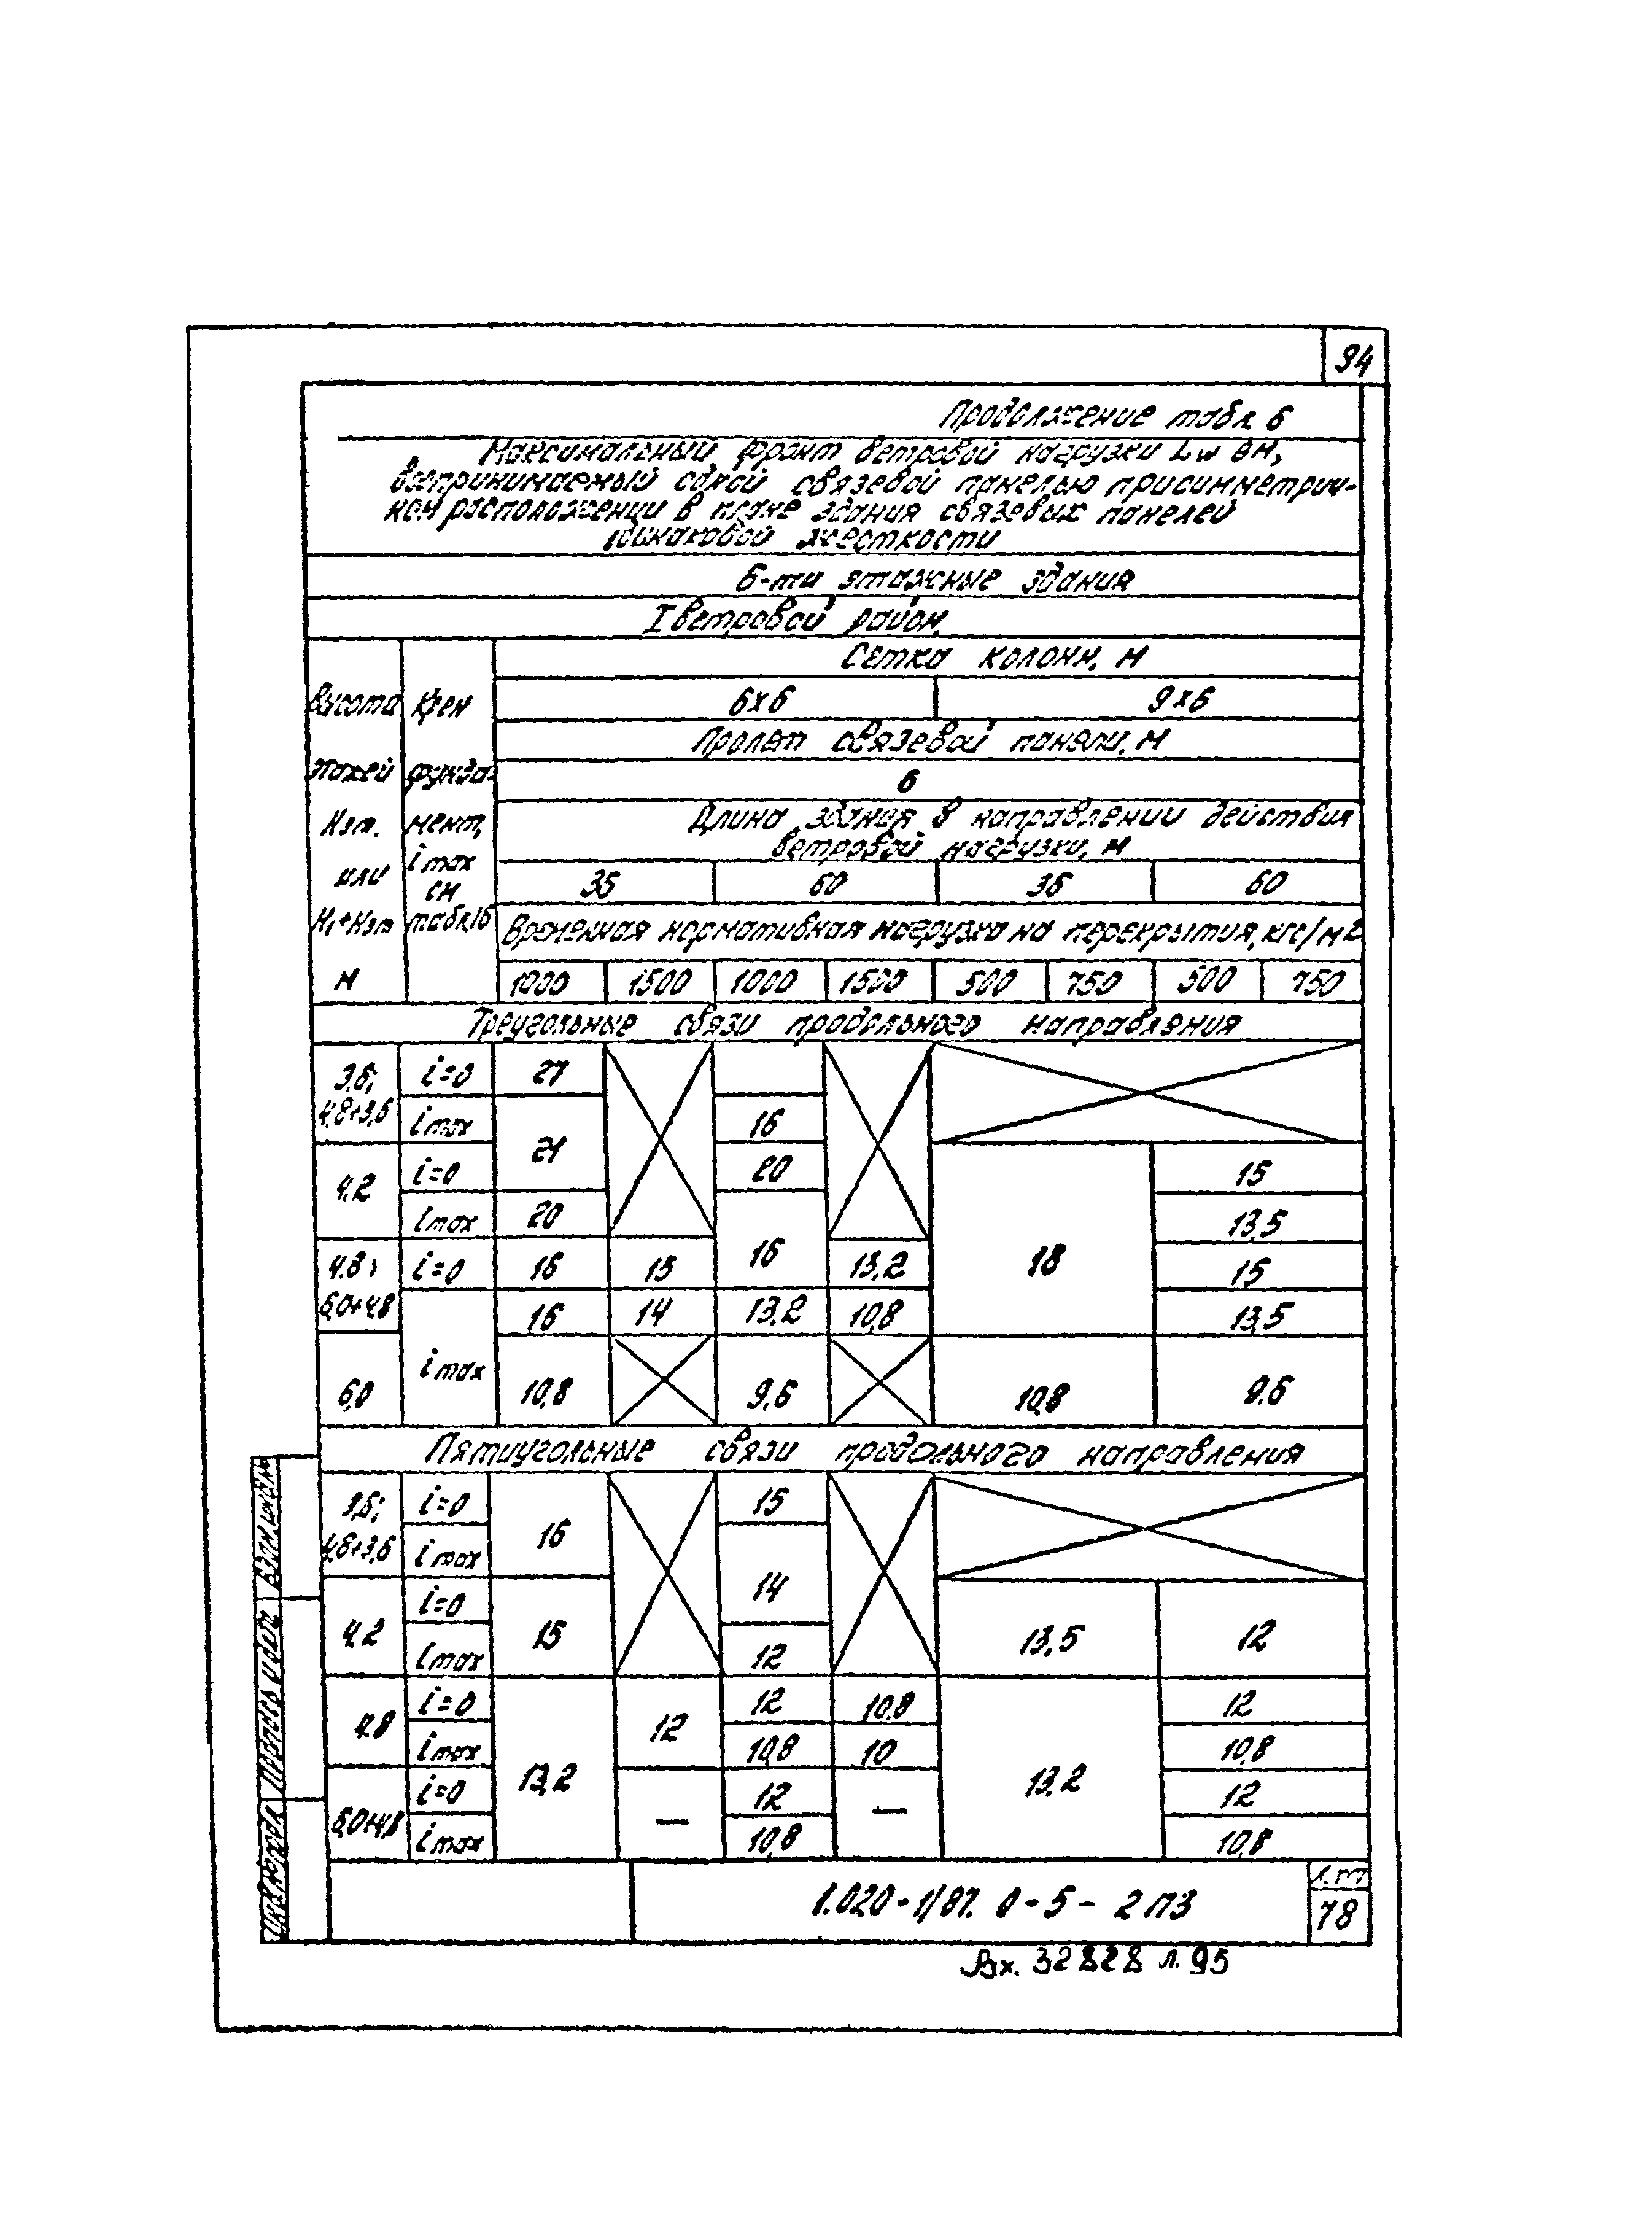 94
Продолжение табл 6
Максимальный фронт ветровой нагрузки Lw вм,
воспринимаемый одной связевой панелью присимметрич-
ном расположении в плане здания связевых панелей
одинаковой жесткости
6-ти этажные здания
I ветровой район.
Высота этажей Нэт. или Н1+Нэт м
Крен фунда- мент, i max см табл.16
Сетка колонн, м
6х6 9х6
Пролет связевой панели, м
6
Длина здания в направлении действия
ветровой нагрузки, м
36 60 36 60
Временная нормативная нагрузка на перекрытия, кгс/м2
1000 1500 1000 1500 500 750 500 750
Треугольные связи продольного направления
3.6; i=0 27
4.8+3.6 i max 21 16
4.2 i=0 20 18 15
i max 20 16 13,5
4.8; i=0 16 15 13,2 15
6,0+4,8 16 14 13,2 10,8 13,5
6,0 i max 10,8 9,6 10,8 9.6
Пятиугольные связи продольного направления
3,6; i=0 16 15
4,8+3,6 i max 14
4,2 i=0 15 13,5 12
i max 12
4,8 i=0 13,2 12 12 10,8 13,2 12
i max 10,8 10 10,8
6,0+4,8 i=0 — 12 — 12
i max 10,8 10,8
Инв.№ подл Подпись и дата Взам.инв.№
1.020-1/87. 0-5-2ПЗ
Лист
78
Вх. 32828 л. 95